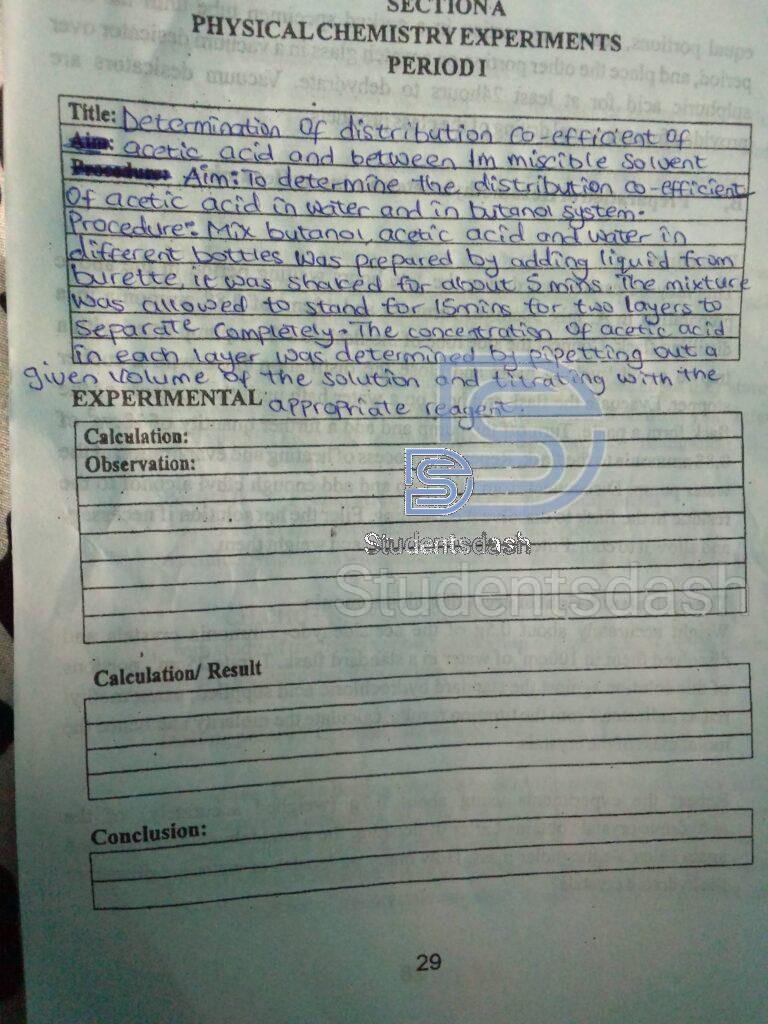 SECTION A
PHYSICAL CHEMISTRY EXPERIMENTS
PERIOD I
Title: Determination Of distribution co-efficient of
Aim: acetic acid and between Im miscible Solvent
Procedure: Aim: To determine the distribution co-efficient
Of acetic acid in water and in butanol system.
Procedure: Mix butanol, acetic acid and water in
different bottles was prepared by adding liquid from
burette, it was shaked for about 5 mins. The mixture
was allowed to stand for 15mins for two layers to
Separate Completely. The concentration Of acetic acid
in each layer was determined by pipetting out a
given volume of the solution and titrating with the
EXPERIMENTAL appropriate reagent.
Calculation:
Observation:
Studentsdash
Studentsdash
Calculation/ Result
Conclusion:
29